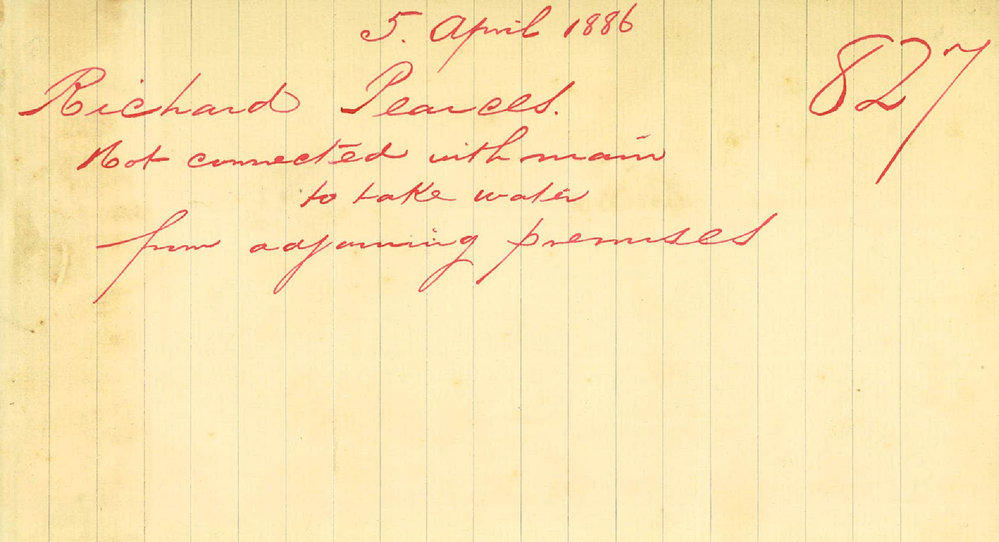 5. April 1886
827
Richard Pearces.
Not connected with main
to take water
from adjoining premises